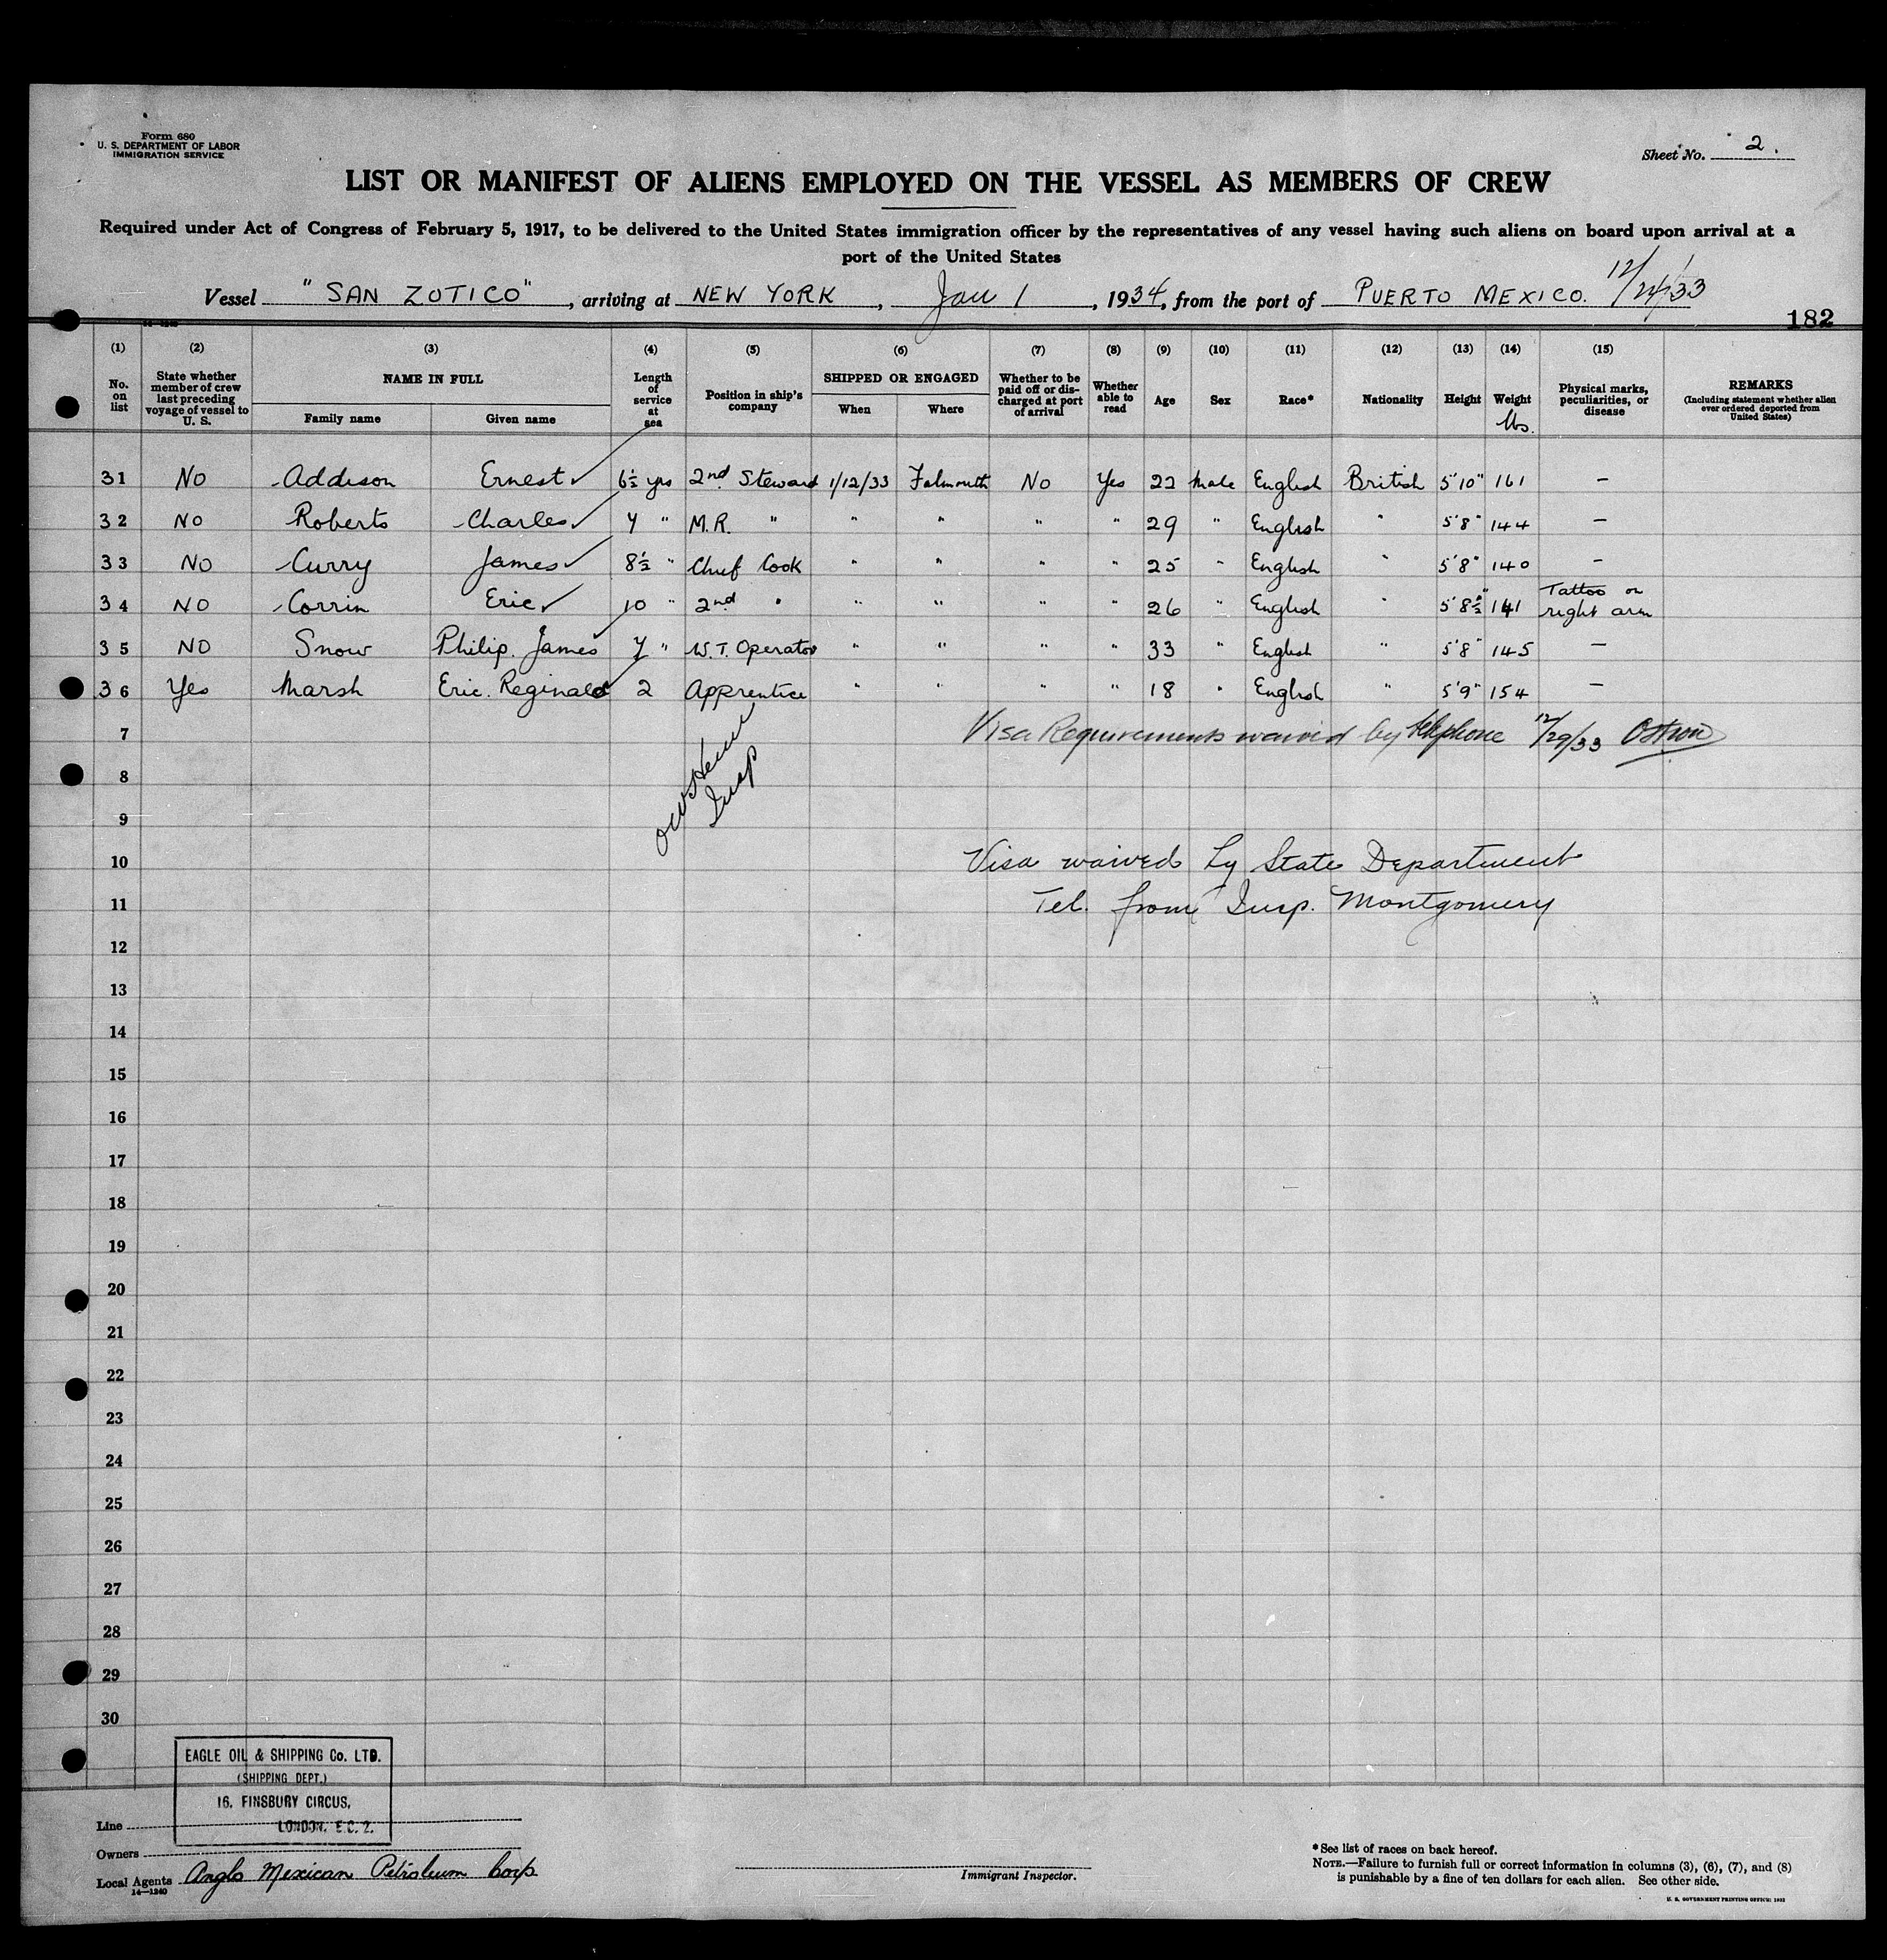 Form 680
U. S. DEPARTMENT OF LABOR
IMMIGRATION SERVICE
Sheet No. 2.
LIST OR MANIFEST OF ALIENS EMPLOYED ON THE VESSEL AS MEMBERS OF CREW
Required under Act of Congress of February 5, 1917, to be delivered to the United States immigration officer by the representatives of any vessel having such aliens on board upon arrival at a
port of the United States
Vessel "SAN ZOTICO", arriving at NEW YORK, Jan 1, 1934, from the port of PUERTO MEXICO. 12/21/33
182
(1) (2) (3) (4) (5) (6) (7) (8) (9) (10) (11) (12) (13) (14) (15)
No. on list
State whether member of crew last preceding voyage of vessel to U. S.
NAME IN FULL
Family name
Given name
Length of service at sea
Position in ship's company
SHIPPED OR ENGAGED
When
Where
Whether to be paid off or discharged at port of arrival
Whether able to read
Age
Sex
Race*
Nationality
Height
Weight lbs.
Physical marks, peculiarities, or disease
REMARKS
(Including statement whether alien ever ordered deported from United States)
31 No Addison Ernest 6½ yrs 2nd Steward 1/12/33 Falmouth No Yes 22 Male English British 5'10" 161 —
32 No Roberts Charles 7 " M.R. " " " " " 29 " English " 5'8" 144 —
33 No Curry James 8½ " Chief Cook " " " " 25 " English " 5'8" 140 —
34 No Corrin Eric 10 " 2nd " " " " " 26 " English " 5'8½" 141 Tattoo on right arm
35 No Snow Philip. James 7 " W.T. Operator " " " " 33 " English " 5'8" 145 —
36 Yes Marsh Eric. Reginald 2 Apprentice " " " " 18 " English " 5'9" 154 —
7 Visa Requirements waived by telephone 12/29/33
8
Insp
9
10 Visa waived by State Department
11 Tel. from Insp. Montgomery
12
13
14
15
16
17
18
19
20
21
22
23
24
25
26
27
28
29
30
EAGLE OIL & SHIPPING Co. LTD.
(SHIPPING DEPT.)
16, FINSBURY CIRCUS,
LONDON. E.C.2.
Line
Owners
Local Agents Anglo Mexican Petroleum Corp.
14—1240
Immigrant Inspector.
*See list of races on back hereof.
NOTE.—Failure to furnish full or correct information in columns (3), (6), (7), and (8)
is punishable by a fine of ten dollars for each alien. See other side.